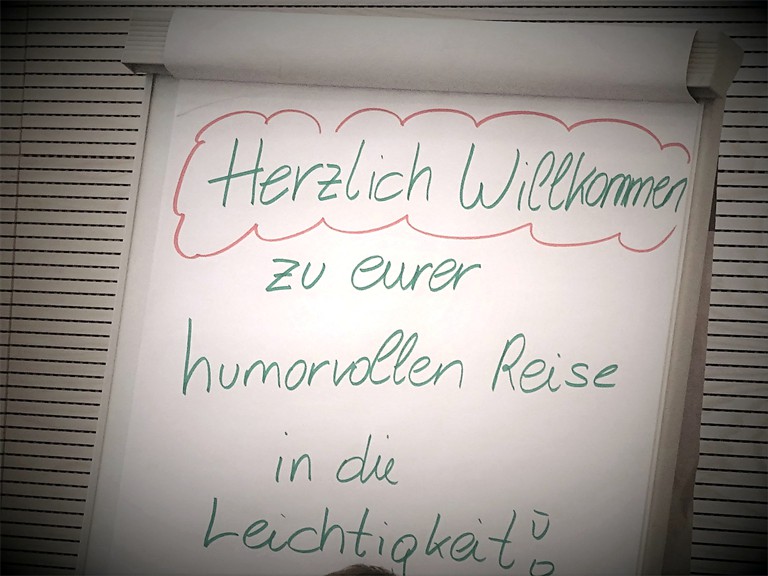 Herzlich Willkommen
zu eurer
humorvollen Reise
in die
Leichtigkeit